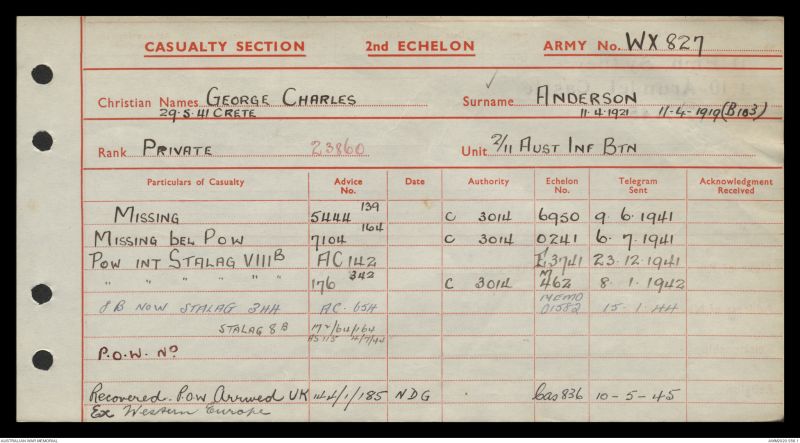 CASUALTY SECTION 2nd ECHELON ARMY No. WX 827
Christian Names GEORGE CHARLES Surname ANDERSON
29.5.41 CRETE 11.4.1921 11-4-1919 (B103)
Rank PRIVATE 23860 Unit 2/11 AUST INF BTN
Particulars of Casualty Advice No. Date Authority Echelon No. Telegram Sent Acknowledgment Received
MISSING 5444 139 C 3014 6950 9.6.1941
MISSING BEL POW 7104 164 C 3014 0241 6.7.1941
POW INT STALAG VIII B AC 142 E3741 23.12.1941
" " " " " " 176 342 C 3014 M 462 8.1.1942
8B NOW STALAG 344 AC. 654 MEMO 01582 15.1.44
STALAG 8B
P.O.W. No
Recovered. Pow Arrived UK 144/1/185 NDG Cas 836 10-5-45
Ex Western Europe
AUSTRALIAN WAR MEMORIAL